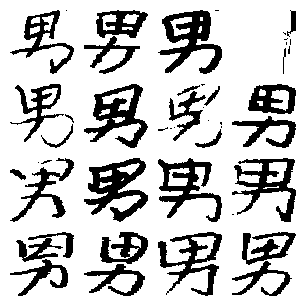 男男男
男男男男
男男男男
男男男男